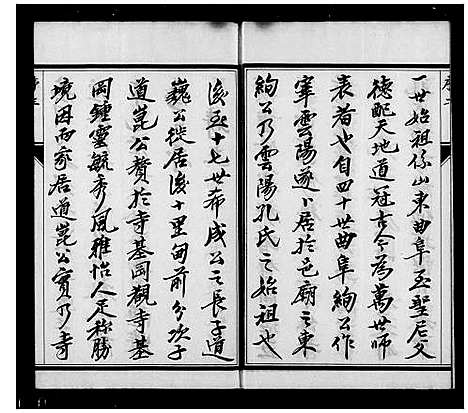 一世始祖係山東曲阜至聖尼父
德配天地道冠古今為萬世師
表者也自四十世曲阜絢公作
宰雲陽遂卜居於邑廟之東
絢公乃雲陽孔氏之始祖也
後至十七世希成公之長子道
巍公徙居後十里甸前分次子
道崑公贅於寺基岡觀寺基
岡鍾靈毓秀風雅怡人足稱勝
境因而家居道崑公實乃寺